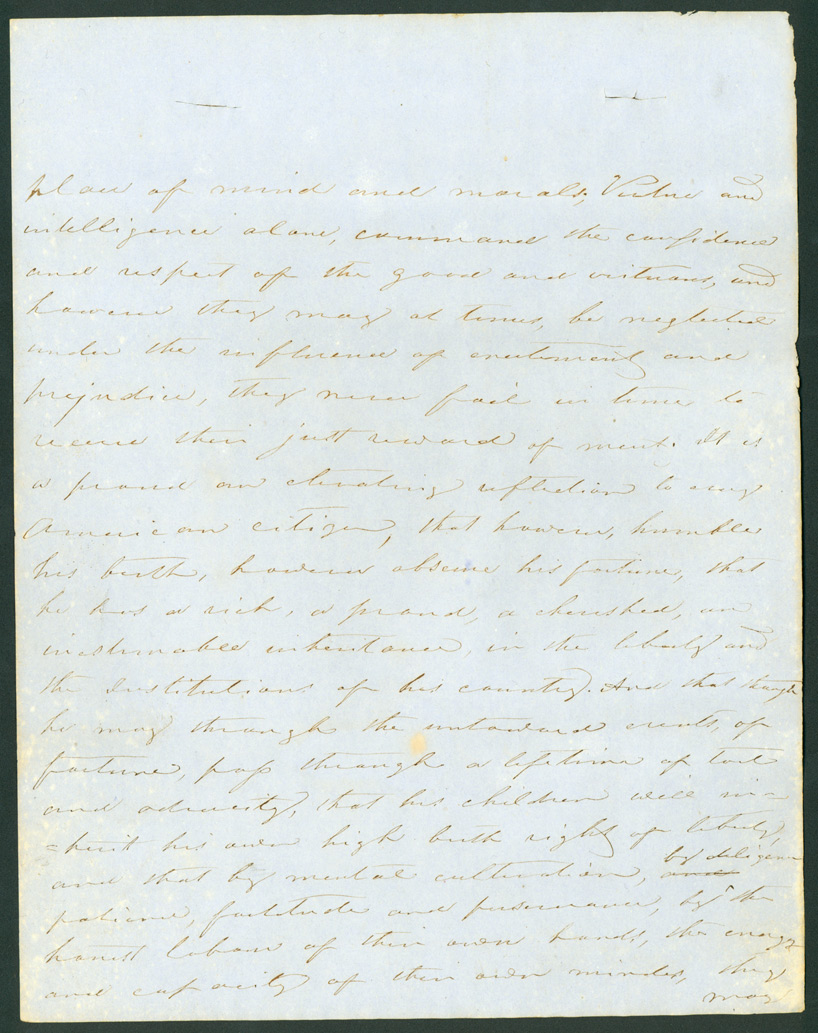 place of mind and morals, Virtue and
intelligence alone, command the confidence
and respect of the good and virtuous, and
however they may at times, be neglected
under the influence of excitement and
prejudice, they never fail in time to
receive their just reward of merit. It is
a proud an elevating reflection to every
American citizen, that however, humble
his birth, however obscure his fortune, that
he has a rich, a proud, a cherished, an
inestimable inheritance, in the liberty and
the Institutions of his country. And that though
he may through the untoward events, of
fortune, pass through a lifetime of toil
and adversity, that his children will in=
=herit his own high birth right of liberty,
and that by mental cultivation, and by diligence
patience, fortitude and perseverance, by the
honest labour of their own hands, the energy
and capacity of their own minds, they
may